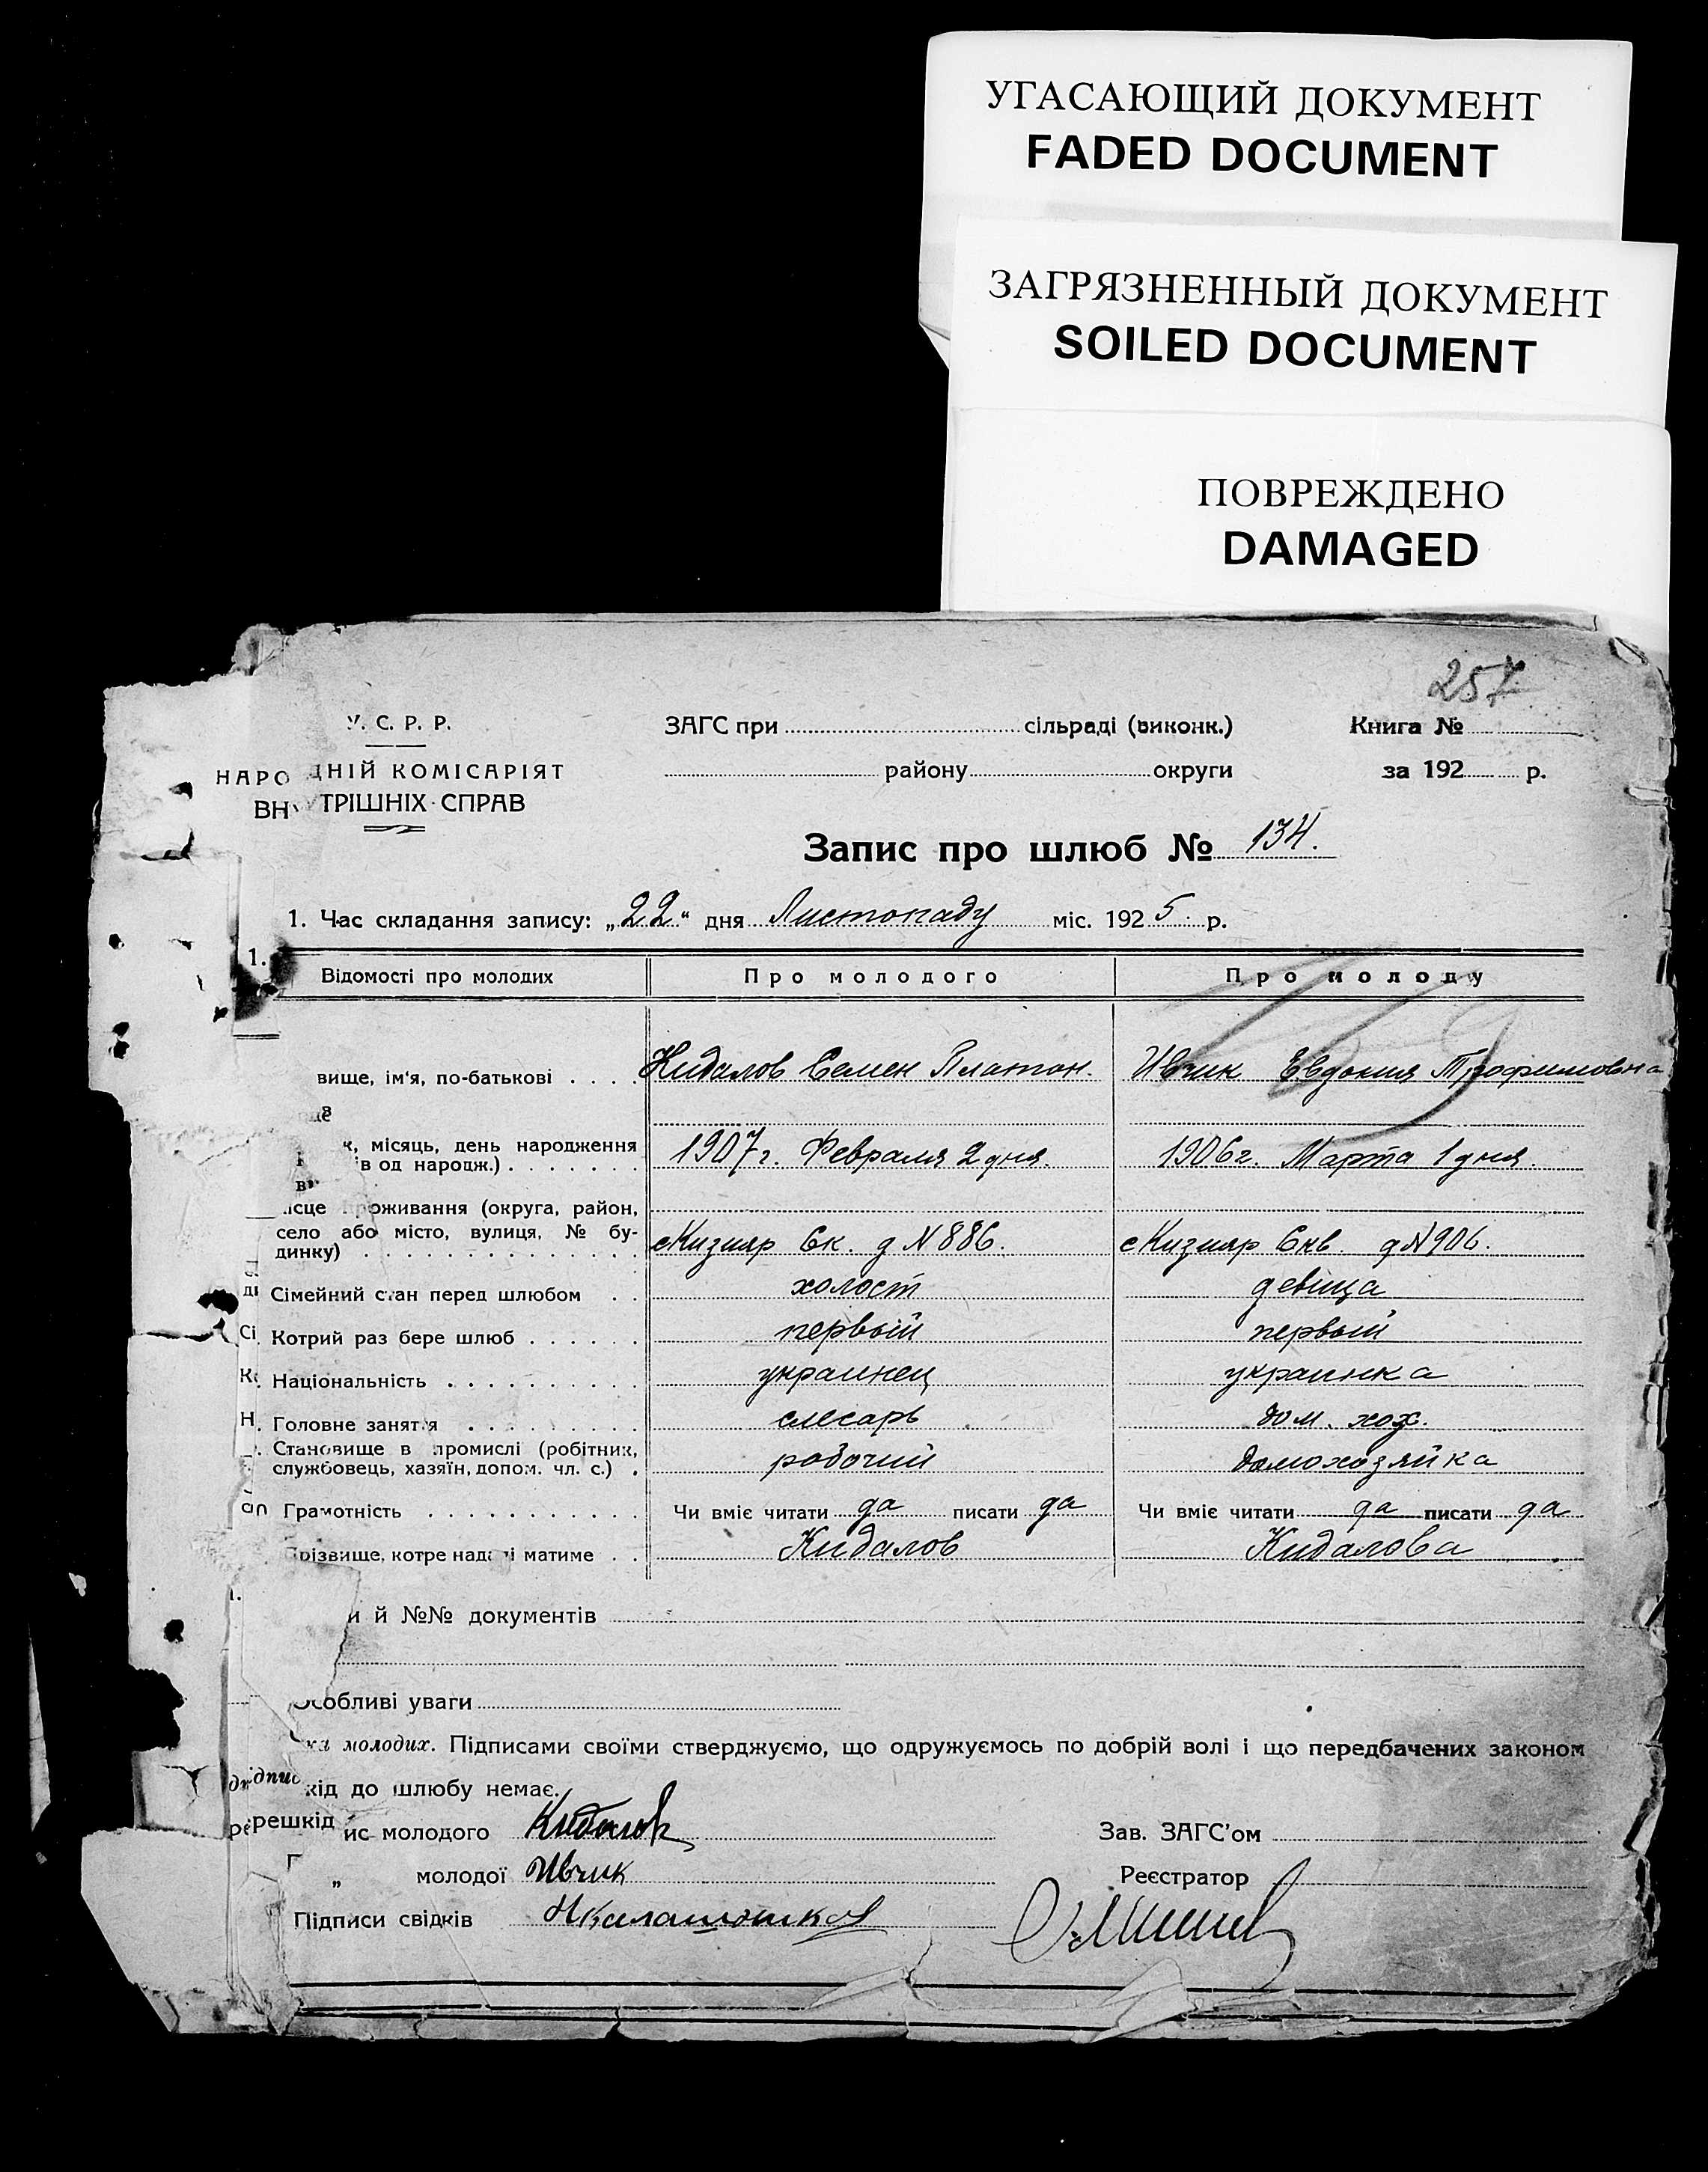 УГАСАЮЩИЙ ДОКУМЕНТ
FADED DOCUMENT
ЗАГРЯЗНЕННЫЙ ДОКУМЕНТ
SOILED DOCUMENT
ПОВРЕЖДЕНО
DAMAGED
257
У. С. Р. Р. ЗАГС при сільраді (виконк.) Книга №
НАРО ДНІЙ КОМІСАРІЯТ району округи за 192 р.
ВН ТРІШНІХ СПРАВ
Запис про шлюб № 134.
1. Час складання запису: „22" дня Листопаду міс. 1925 р.
1.
Відомості про молодих Про молодого Про молоду
вище, ім'я, по-батькові Кидалов Семен Платон. Ивчик Евдокия Трофимовна
к, місяць, день народження
ів од народж.) 1907 г. Февраля 2 дня. 1906 г. Марта 1 дня.
ісце проживання (округа, район,
село або місто, вулиця, № бу-
динку) с Кизияр 6к. д № 886. с Кизияр 6кв. д № 906.
Сімейний стан перед шлюбом холост девица
Котрий раз бере шлюб первый первый
Національність украинец украинка
Головне заняття слесарь дом. хоз.
Становище в промислі (робітник,
службовець, хазяїн, допом. чл. с.) рабочий домохозяйка
Грамотність Чи вміє читати да писати да Чи вміє читати да писати да
прізвище, котре надалі матиме Кидалов Кидалова
и й №№ документів
Особливі уваги
ка молодих. Підписами своїми стверджуємо, що одружуємось по добрій волі і що передбачених законом
кід до шлюбу немає.
решкід
ис молодого Кидалов Зав. ЗАГС'ом
„ молодої Ивчик Реєстратор
Підписи свідків